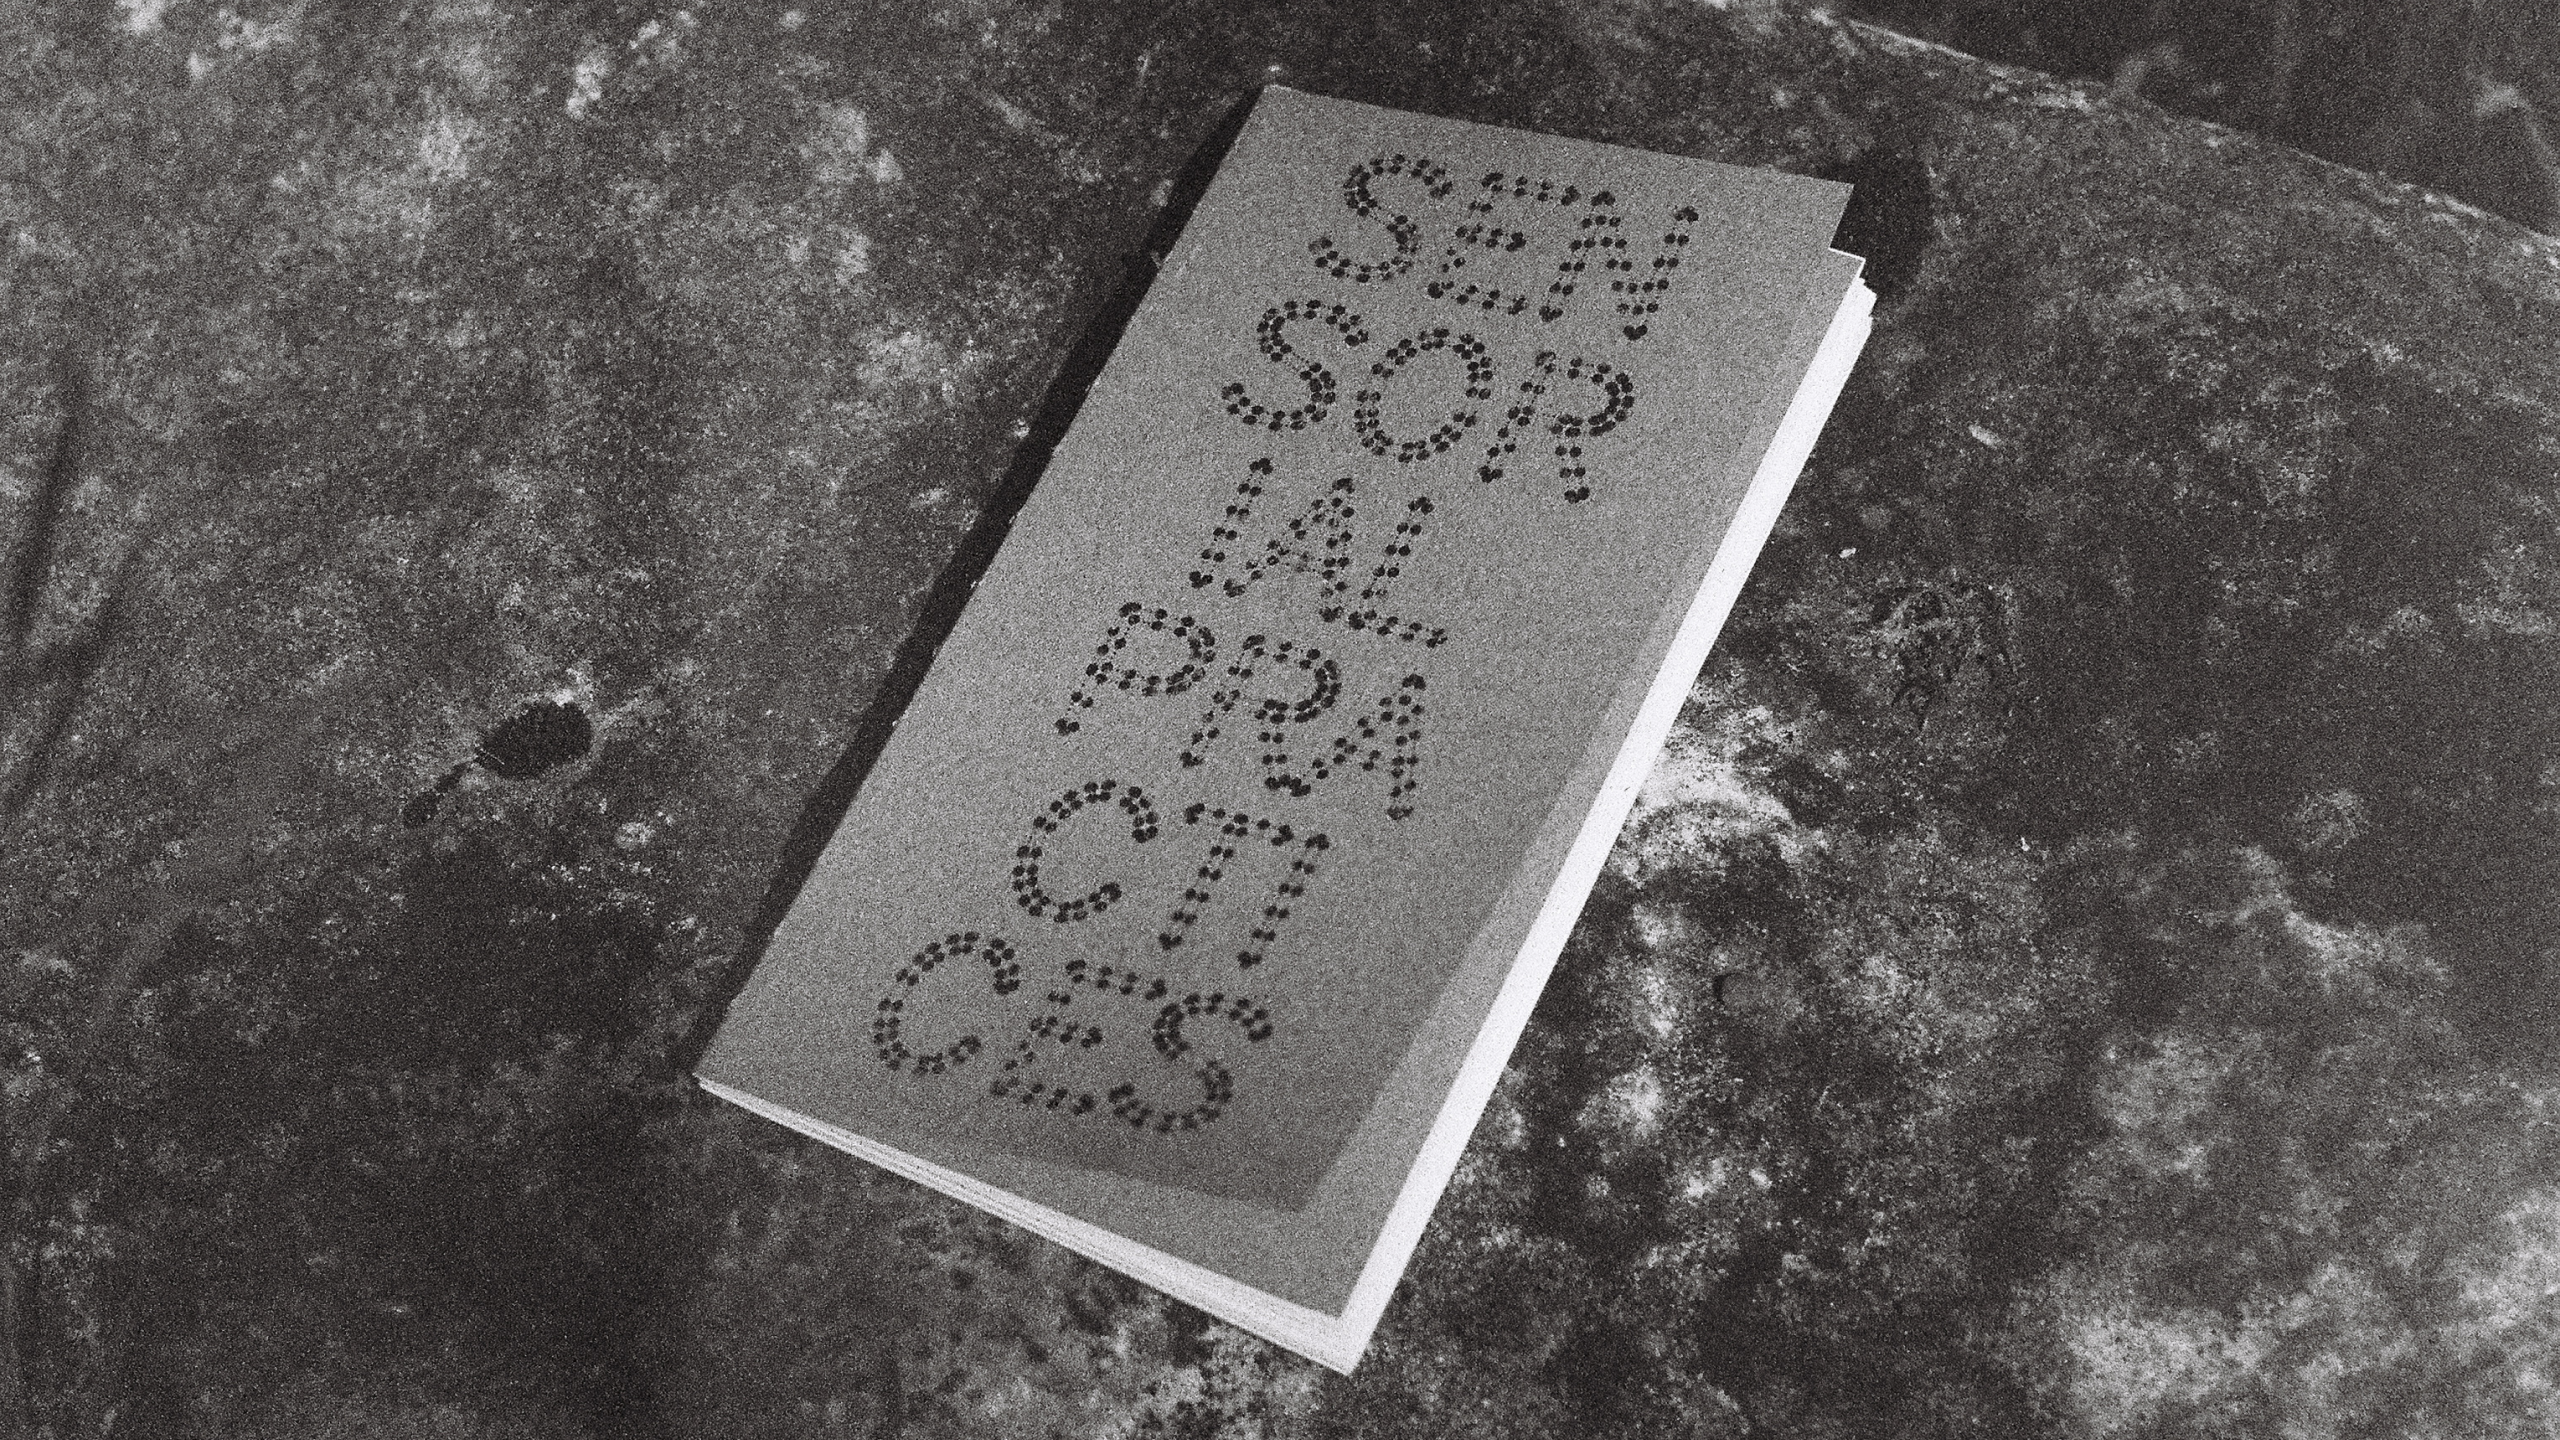 SEN
SOR
IAL
PRA
CTI
CES